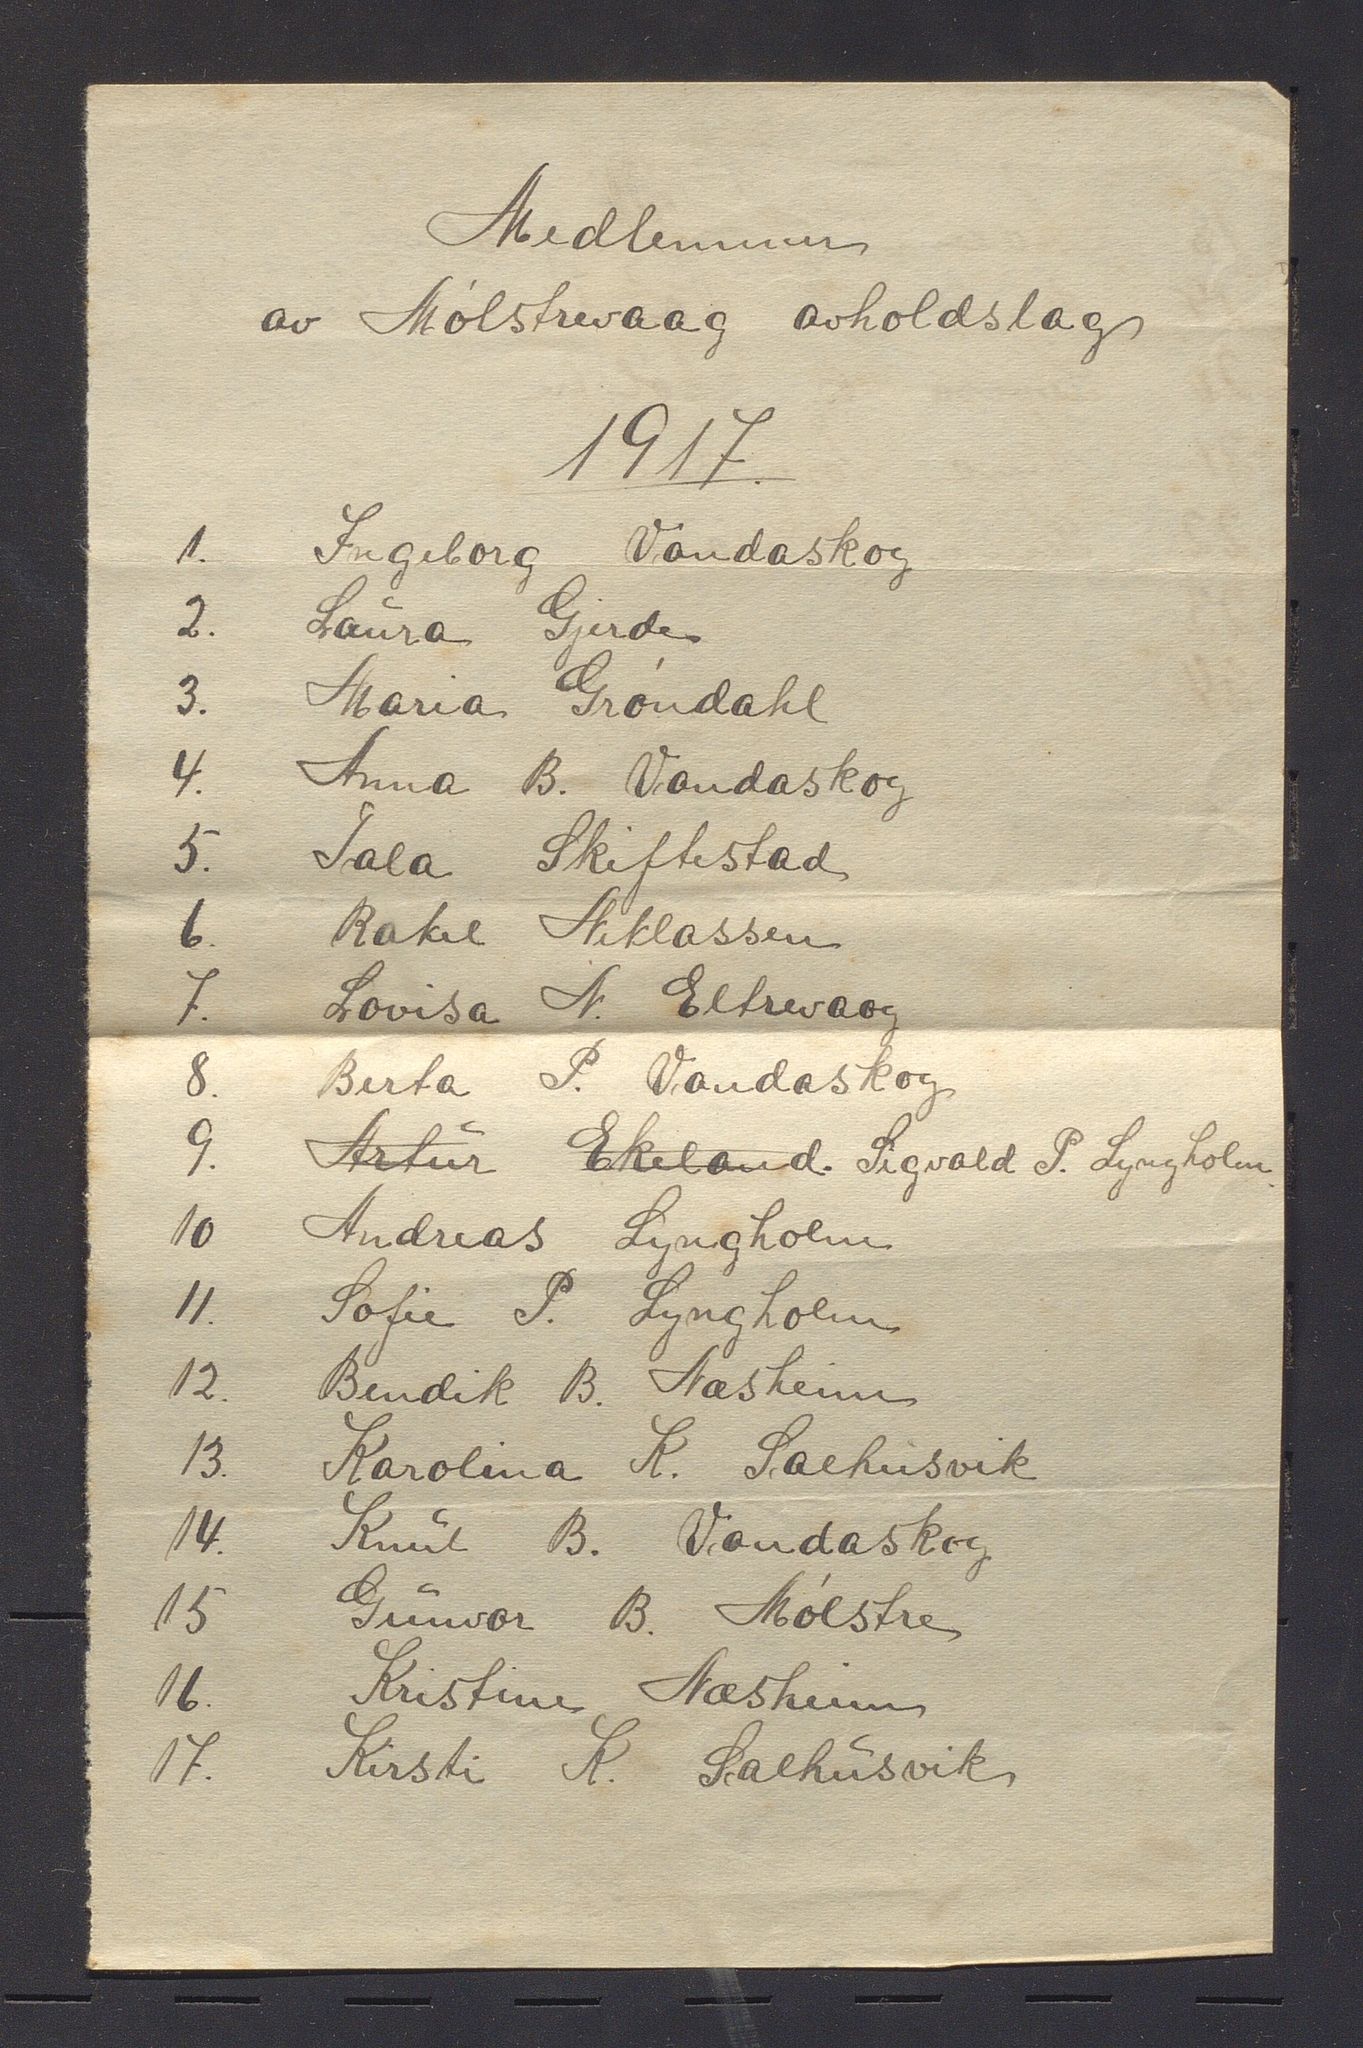 Medlemmer
av Mólstrevaag avholdslag
1917.
1. Ingeborg Vandaskog
2. Laura Gjerde
3. Maria Gróndahl
4. Anna B. Vandaskog
5. Tala Skiftestad
6. Rakel Niklassen
7. Lovisa N. Eltrevaag
8. Berta P. Vandaskog
9. Artur Ekeland. Sigvald P. Lyngholm.
10 Andreas Lyngholm
11. Sofie P. Lyngholm
12. Bendik B. Næsheim
13. Karolina K. Salhusvik
14. Knut B. Vandaskog
15 Gunvor B. Mólstre
16. Kristine Næsheim
17. Kirsti K. Salhusvik